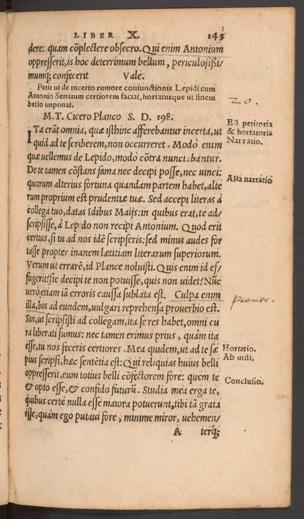 LIBER X. 143
dere: quam cōplectere obsecro. Qui enim Antonium
oppresserit, is hoc deterrimum bellum, periculosissi/
mumq; confecerit Vale.
Petit ut de incerto rumore coniunctionis Lepidi cum
Antonio Senatum certiorem faciat, hortaturque ut finem
bello imponat.
M. T. Cicero Planco S. D. 198.
Est petitoria
& hortatoria
Narratio.
Ita erāt omnia, quæ isthinc afferebantur incerta, ut
quid ad te scriberem, non occurreret. Modo enim
quæ uellemus de Lepido, modo cōtrà nunciabantur.
De te tamen cōstans fama nec decipi posse, nec uinci:
quorum alterius fortuna quandam partem habet, alte
rum proprium est prudentiæ tuæ. Sed accepi literas à
Alia narratio
collega tuo, datas Idibus Maijs: in quibus erat, te ad/
scripsisse, à Lepido non recipi Antonium. Quod erit
certius, si tu ad nos idē scripseris: sed minus audes for
tasse propter inanem lætitiam literarum superiorum.
Verum ut errare, id Plance noluisti. Quis enim id ef/
fugerit: sic decipi te non potuisse, quis non uidet? Nūc
uerò etiam iā erroris causa sublata est. Culpa enim
illa, bis ad eundem, uulgari reprehensa prouerbio est.
Sin, ut scripsisti ad collegam, ita se res habet, omni cu
ra liberati sumus: nec tamen erimus prius, quàm ita
esse, tu nos feceris certiores. Mea quidem, ut ad te sæ
Hortatio.
pius scripsi, hæc sentētia est: Qui reliquias huius belli
Ab utili.
oppresserit, eum totius belli cōfectorem fore: quem te
& opto esse, & confido futurū. Studia mea erga te,
Conclusio.
quibus certè nulla esse maiora potuerunt, tibi tā grata
esse, quàm ego putaui fore, minime miror, uehemen/
terq;